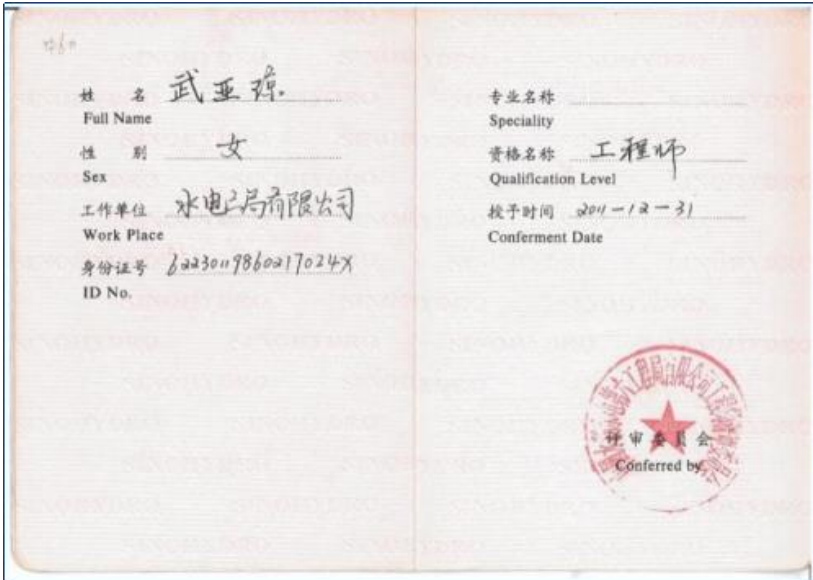 姓 名 武亚琼
Full Name
性 别 女
Sex
工作单位 水电三局有限公司
Work Place
身份证号 62230119860217024X
ID No.
专业名称
Speciality
资格名称 工程师
Qualification Level
授予时间 2011-12-31
Conferment Date
评审委员会
Conferred by